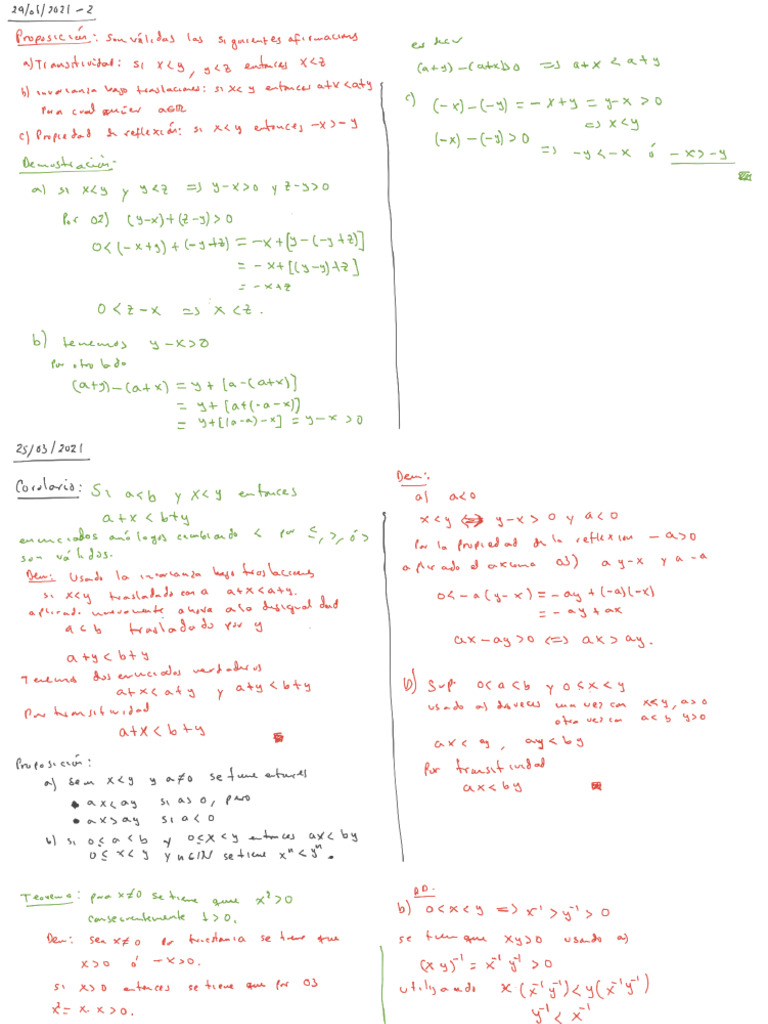 29/01/2021 - 2
Proposición: Son válidas las siguientes afirmaciones
a) Transitividad: si x<y, y<z entonces x<z
b) invarianza bajo traslaciones: si x<y entonces a+x<a+y
para cualquier a∈ℝ
c) Propiedad de reflexión: si x<y entonces -x>-y
Demostración:
a) si x<y y y<z => y-x>0 y z-y>0
Por O2) (y-x)+(z-y)>0
0<(-x+y)+(-y+z) = -x+[y-(-y+z)]
= -x+[(y-y)+z]
= -x+z
0<z-x => x<z.
b) tenemos y-x>0
Por otro lado
(a+y)-(a+x) = y+[a-(a+x)]
= y+[a+(-a-x)]
= y+[(a-a)-x] = y-x>0
es decir
(a+y)-(a+x)>0 => a+x<a+y
c) (-x)-(-y) = -x+y = y-x>0
=> x<y
(-x)-(-y)>0
=> -y<-x ó -x>-y
25/03/2021
Corolario: Si a<b y x<y entonces
a+x<b+y
enunciados análogos cambiando < por ≤, >, ó ≥
son válidos.
Dem: Usado la invarianza bajo traslaciones
si x<y trasladado con a a+x<a+y.
aplicado nuevamente ahora a la desigualdad
a<b trasladado por y
a+y<b+y
Tenemos dos enunciados verdaderos
a+x<a+y y a+y<b+y
Por transitividad
a+x<b+y
Proposición:
a) Sean x<y y a≠0 se tiene entonces
• ax<ay si a>0, pero
• ax>ay si a<0
b) si 0≤a<b y 0≤x<y entonces ax<by
0≤x<y y n∈ℕ se tiene xⁿ<yⁿ.
Dem:
a) a<0
x<y <=> y-x>0 y a<0
Por la propiedad de la reflexion -a>0
aplicado el axioma O3) a y-x y a -a
0<-a(y-x) = -ay+(-a)(-x)
= -ay+ax
ax-ay>0 <=> ax>ay.
b) Sup: 0<a<b y 0≤x<y
usado a) dos veces una vez con x<y, a>0
otra vez con a<b y>0
ax<ay, ay<by
Por transitividad
ax<by
Teorema: para x≠0 se tiene que x²>0
consecuentemente 1>0.
Dem: sea x≠0 por tricotomía se tiene que
x>0 ó -x>0.
si x>0 entonces se tiene que por O3
x²=x·x>0.
b) 0<x<y => x⁻¹>y⁻¹>0
se tiene que xy>0 usando a)
(xy)⁻¹ = x⁻¹y⁻¹>0
utilizando x(x⁻¹y⁻¹)<y(x⁻¹y⁻¹)
y⁻¹<x⁻¹